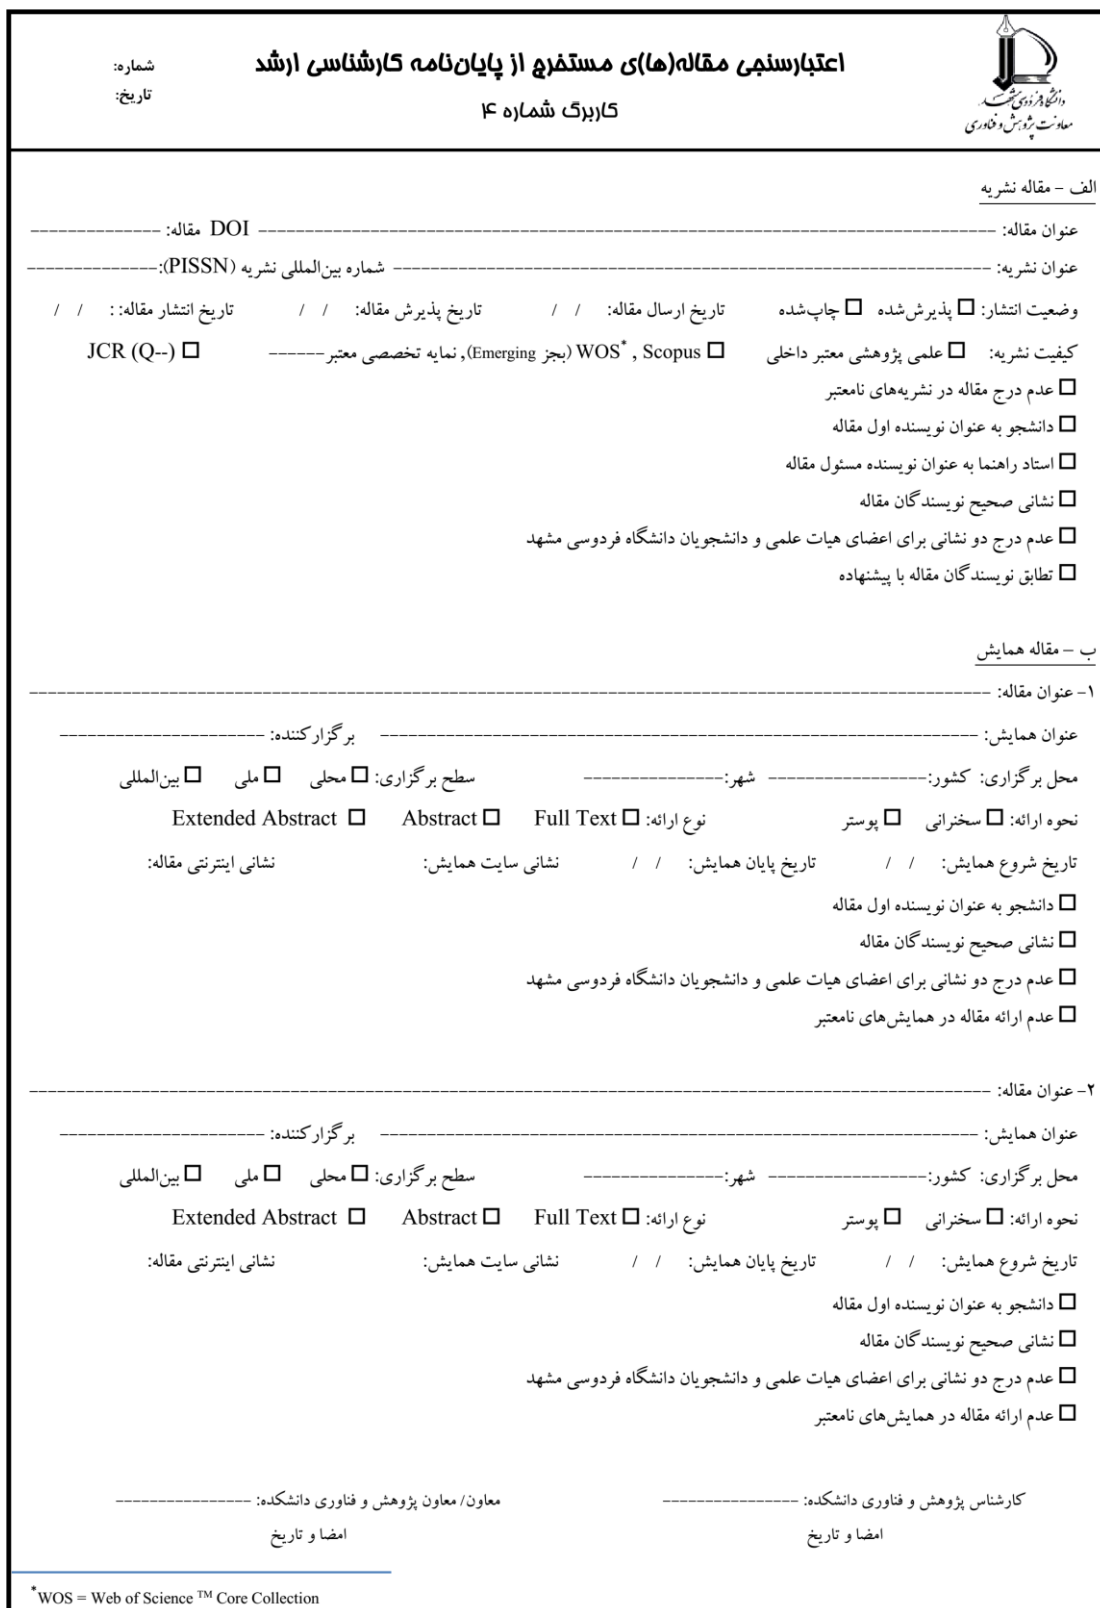 دانشگاه فردوسی مشهد
معاونت پژوهش و فناوری
اعتبارسنجی مقاله(ها)ی مستخرج از پایان‌نامه کارشناسی ارشد
کاربرگ شماره ۴
شماره:
تاریخ:
الف - مقاله نشریه
عنوان مقاله: -------------------------------------------------------------------------------- DOI مقاله: --------------
عنوان نشریه: ---------------------------------------------------------------- شماره بین‌المللی نشریه (PISSN):--------------
وضعیت انتشار: □ پذیرش‌شده □ چاپ‌شده تاریخ ارسال مقاله: / / تاریخ پذیرش مقاله: / / تاریخ انتشار مقاله: : / /
کیفیت نشریه: □ علمی پژوهشی معتبر داخلی □ WOS* , Scopus (بجز Emerging), نمایه تخصصی معتبر ------ □ JCR (Q--)
□ عدم درج مقاله در نشریه‌های نامعتبر
□ دانشجو به عنوان نویسنده اول مقاله
□ استاد راهنما به عنوان نویسنده مسئول مقاله
□ نشانی صحیح نویسندگان مقاله
□ عدم درج دو نشانی برای اعضای هیات علمی و دانشجویان دانشگاه فردوسی مشهد
□ تطابق نویسندگان مقاله با پیشنهاده
ب – مقاله همایش
۱- عنوان مقاله: -------------------------------------------------------------------------------------------------------
عنوان همایش: ---------------------------------------------------------------- برگزارکننده: ----------------------
محل برگزاری: کشور:----------------- شهر:--------------- سطح برگزاری: □ محلی □ ملی □ بین‌المللی
نحوه ارائه: □ سخنرانی □ پوستر نوع ارائه: □ Full Text □ Abstract □ Extended Abstract
تاریخ شروع همایش: / / تاریخ پایان همایش: / / نشانی سایت همایش: نشانی اینترنتی مقاله:
□ دانشجو به عنوان نویسنده اول مقاله
□ نشانی صحیح نویسندگان مقاله
□ عدم درج دو نشانی برای اعضای هیات علمی و دانشجویان دانشگاه فردوسی مشهد
□ عدم ارائه مقاله در همایش‌های نامعتبر
۲- عنوان مقاله: -------------------------------------------------------------------------------------------------------
عنوان همایش: ---------------------------------------------------------------- برگزارکننده: ----------------------
محل برگزاری: کشور:----------------- شهر:--------------- سطح برگزاری: □ محلی □ ملی □ بین‌المللی
نحوه ارائه: □ سخنرانی □ پوستر نوع ارائه: □ Full Text □ Abstract □ Extended Abstract
تاریخ شروع همایش: / / تاریخ پایان همایش: / / نشانی سایت همایش: نشانی اینترنتی مقاله:
□ دانشجو به عنوان نویسنده اول مقاله
□ نشانی صحیح نویسندگان مقاله
□ عدم درج دو نشانی برای اعضای هیات علمی و دانشجویان دانشگاه فردوسی مشهد
□ عدم ارائه مقاله در همایش‌های نامعتبر
کارشناس پژوهش و فناوری دانشکده: ---------------- معاون/ معاون پژوهش و فناوری دانشکده: ----------------
امضا و تاریخ امضا و تاریخ
*WOS = Web of Science ™ Core Collection